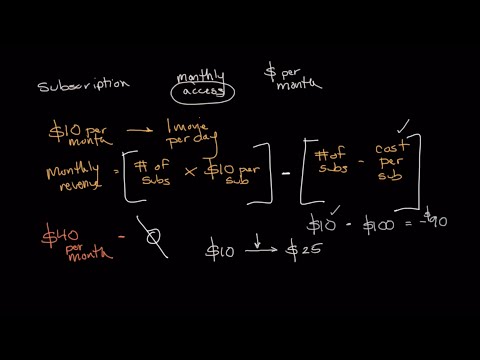 subscription
monthly access
$ per month
$10 per month → 1 movie per day
monthly revenue = [ # of subs × $10 per sub ] - [ # of subs - cost per sub ]
$10 - $100 = -$90
$40 per month -
$10 → $25